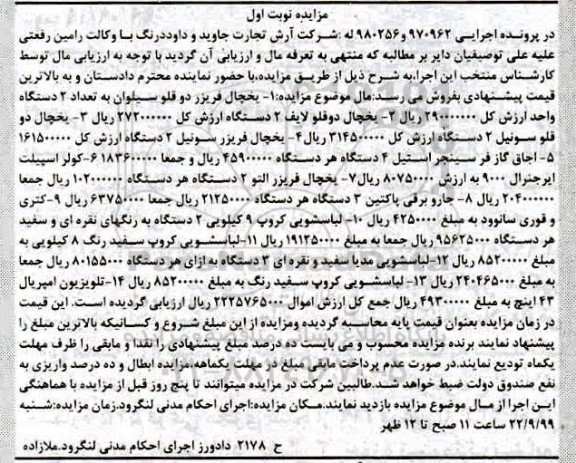 مزایده نوبت اول
در پرونده اجرایی ۹۷۰۹۶۲ و۹۸۰۲۵۶ له :شرکت آرش تجارت جاوید و داوددرنگ با وکالت رامین رفعتی
علیه علی توصیفیان دایر بر مطالبه که منتهی به تعرفه مال و ارزیابی آن گردید با توجه به ارزیابی مال توسط
کارشناس منتخب این اجرا،به شرح ذیل از طریق مزایده،با حضور نماینده محترم دادستان و به بالاترین
قیمت پیشنهادی بفروش می رسد:مال موضوع مزایده:۱- یخچال فریزر دو قلو سیلوان به تعداد ۲ دستگاه
واحد ارزش کل ۲۹۰۰۰۰۰۰۰ ریال ۲- یخچال دوقلو لایف ۲ دستگاه ارزش کل ۲۷۲۰۰۰۰۰۰ ریال ۳- یخچال دو
قلو سونیل ۲ دستگاه ارزش کل ۳۱۴۵۰۰۰۰۰ ریال ۴- یخچال فریزر سونیل ۲ دستگاه ارزش کل ۱۶۱۵۰۰۰۰۰
۵- اجاق گاز فر سینجر استیل ۴ دستگاه هر دستگاه ۴۵۹۰۰۰۰۰ ریال و جمعا ۱۸۳۶۰۰۰۰۰ ۶-کولر اسپیلت
ایرجنرال ۹۰۰۰ به ارزش ۸۰۷۵۰۰۰۰ ریال۷- یخچال فریزر التو ۲ دستگاه هر دستگاه ۱۰۲۰۰۰۰۰۰ ریال جمعا
۲۰۴۰۰۰۰۰۰ ریال ۸- جارو برقی پاکتین ۳ دستگاه هر دستگاه ۲۱۲۵۰۰۰۰ ریال جمعا ۶۳۷۵۰۰۰۰ ریال ۹-کتری
و قوری سانوود به مبلغ ۴۲۵۰۰۰۰ ریال ۱۰- لباسشویی کروپ ۹ کیلویی ۲ دستگاه به رنگهای نقره ای و سفید
هر دستگاه ۹۵۶۲۵۰۰۰ ریال جمعا به مبلغ ۱۹۱۲۵۰۰۰۰ ریال ۱۱-لباسشویی کروپ سفید رنگ ۸ کیلویی به
مبلغ ۸۵۲۰۰۰۰۰ ریال ۱۲-لباسشویی مدیا سفید و نقره ای ۳ دستگاه به ازای هر دستگاه ۸۰۱۵۵۰۰۰ ریال جمعا
به مبلغ ۲۴۰۴۶۵۰۰۰ ریال ۱۳- لباسشویی کروپ سفید رنگ به مبلغ ۸۵۲۰۰۰۰۰ ریال ۱۴-تلویزیون امپریال
۴۳ اینچ به مبلغ ۴۹۳۰۰۰۰۰ ریال جمع کل ارزش اموال ۲۲۲۵۷۶۵۰۰۰ ریال ارزیابی گردیده است. این قیمت
در زمان مزایده بعنوان قیمت پایه محاسبه گردیده ومزایده از این مبلغ شروع و کسانیکه بالاترین مبلغ را
پیشنهاد نمایند برنده مزایده محسوب و می بایست ده درصد مبلغ پیشنهادی را نقدا و مابقی را ظرف مهلت
یکماه تودیع نمایند.در صورت عدم پرداخت مابقی مبلغ در مهلت یکماهه،مزایده ابطال و ده درصد واریزی به
نفع صندوق دولت ضبط خواهد شد.طالبین شرکت در مزایده میتوانند تا پنج روز قبل از مزایده با هماهنگی
این اجرا از مال موضوع مزایده بازدید نمایند.مکان مزایده:اجرای احکام مدنی لنگرود.زمان مزایده:شنبه
۲۲/۹/۹۹ ساعت ۱۱ صبح تا ۱۲ ظهر
ح ۲۱۷۸ دادورز اجرای احکام مدنی لنگرود.ملازاده